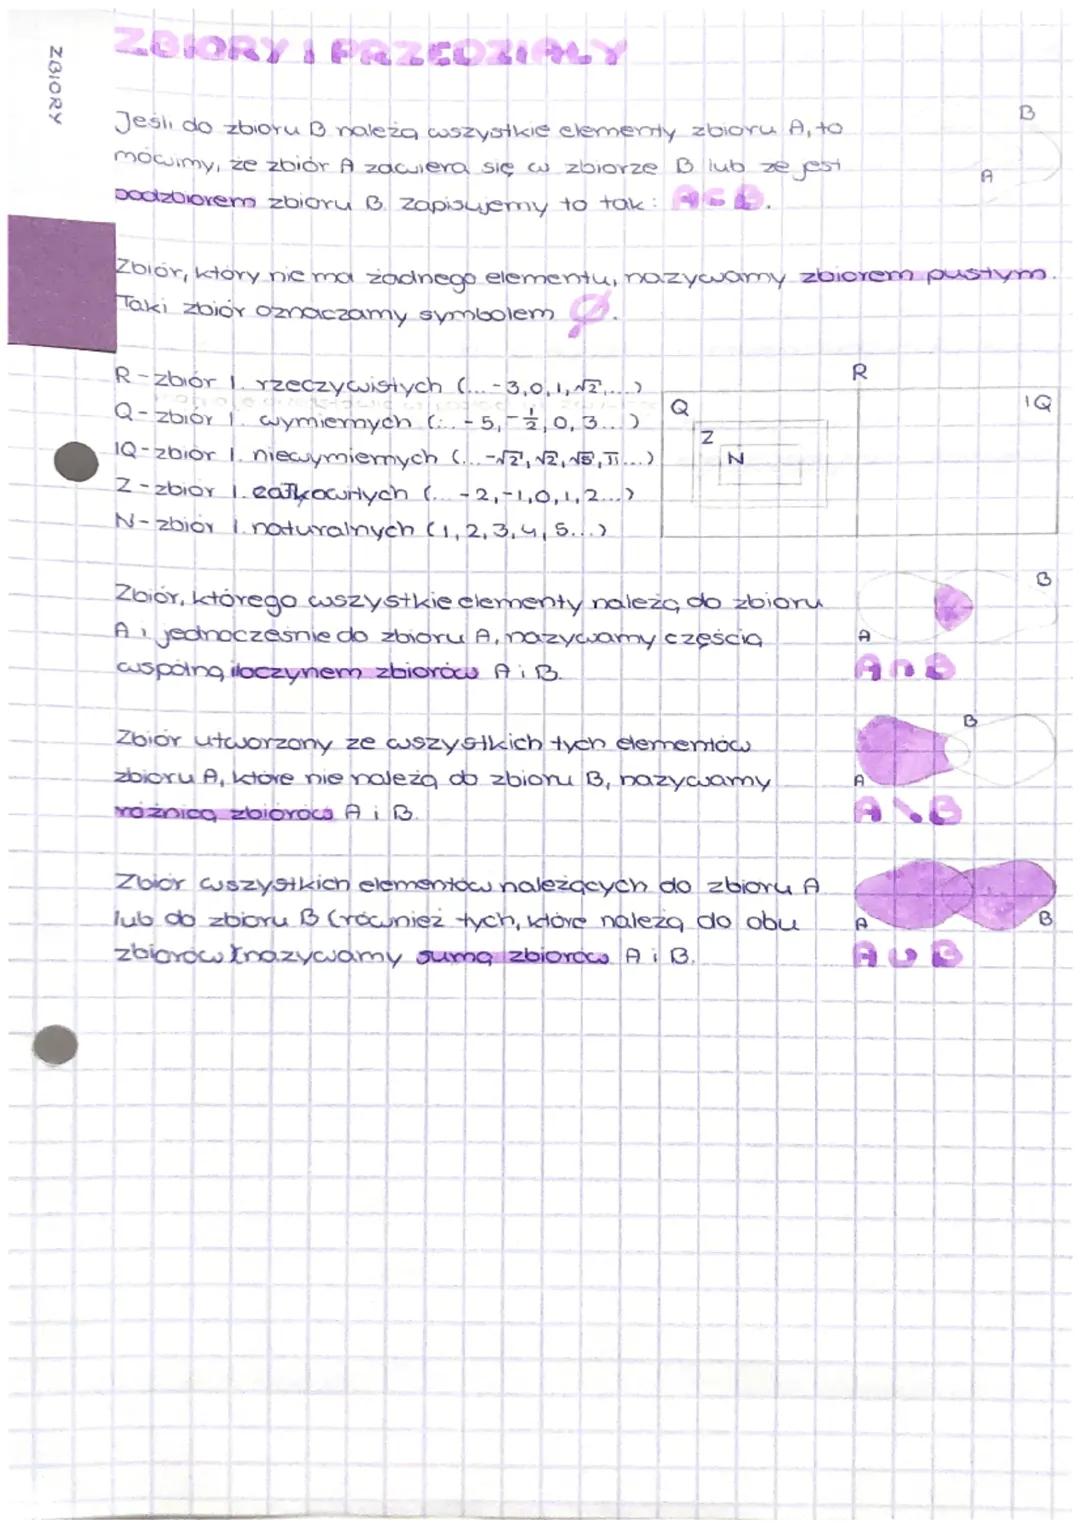 ZBIORY
ZBIORY I PRZEDZIAŁY
Jeśli do zbioru B należą wszystkie elementy zbioru A, to
mówimy, że zbiór A zawiera się w zbiorze B lub że jest
podzbiorem zbioru B. Zapisujemy to tak: A⊂B.
B
A
Zbiór, który nie ma żadnego elementu, nazywamy zbiorem pustym.
Taki zbiór oznaczamy symbolem Ø.
R-zbiór l. rzeczywistych (...-3,0,1,√2,...)
Q-zbiór l. wymiernych (...-5,-1/2,0,3...)
IQ-zbiór l. niewymiernych (...-√2,√2,√5,π...)
Z-zbiór l. całkowitych (...-2,-1,0,1,2...)
N-zbiór l. naturalnych (1,2,3,4,5...)
R
Q
IQ
Z
N
Zbiór, którego wszystkie elementy należą do zbioru
A i jednocześnie do zbioru A, nazywamy częścią
wspólną iloczynem zbiorów A i B.
B
A
A∩B
Zbiór utworzony ze wszystkich tych elementów
zbioru A, które nie należą do zbioru B, nazywamy
różnicą zbiorów A i B.
B
A
A\B
Zbiór wszystkich elementów należących do zbioru A
lub do zbioru B (również tych, które należą do obu
zbiorów) nazywamy sumą zbiorów A i B.
A
B
A∪B